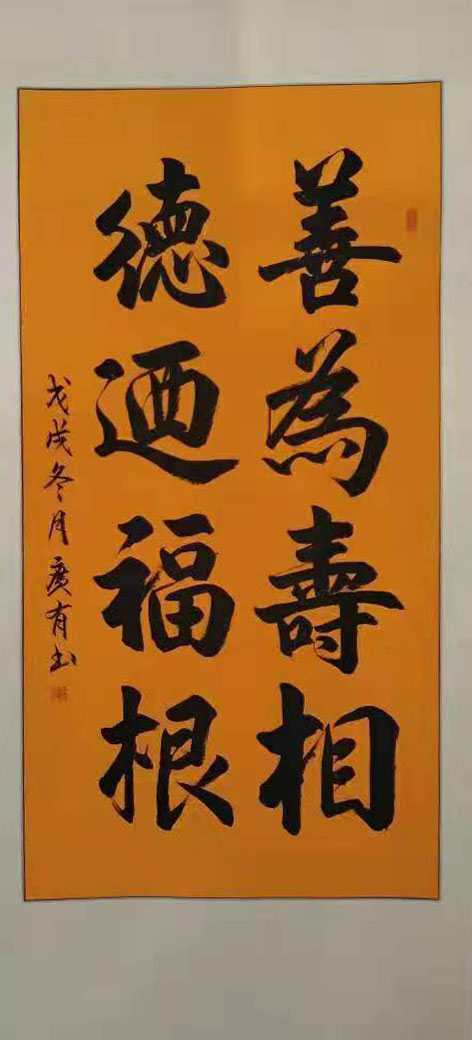 善為壽相
德迺福根
戊戌冬月廣有书